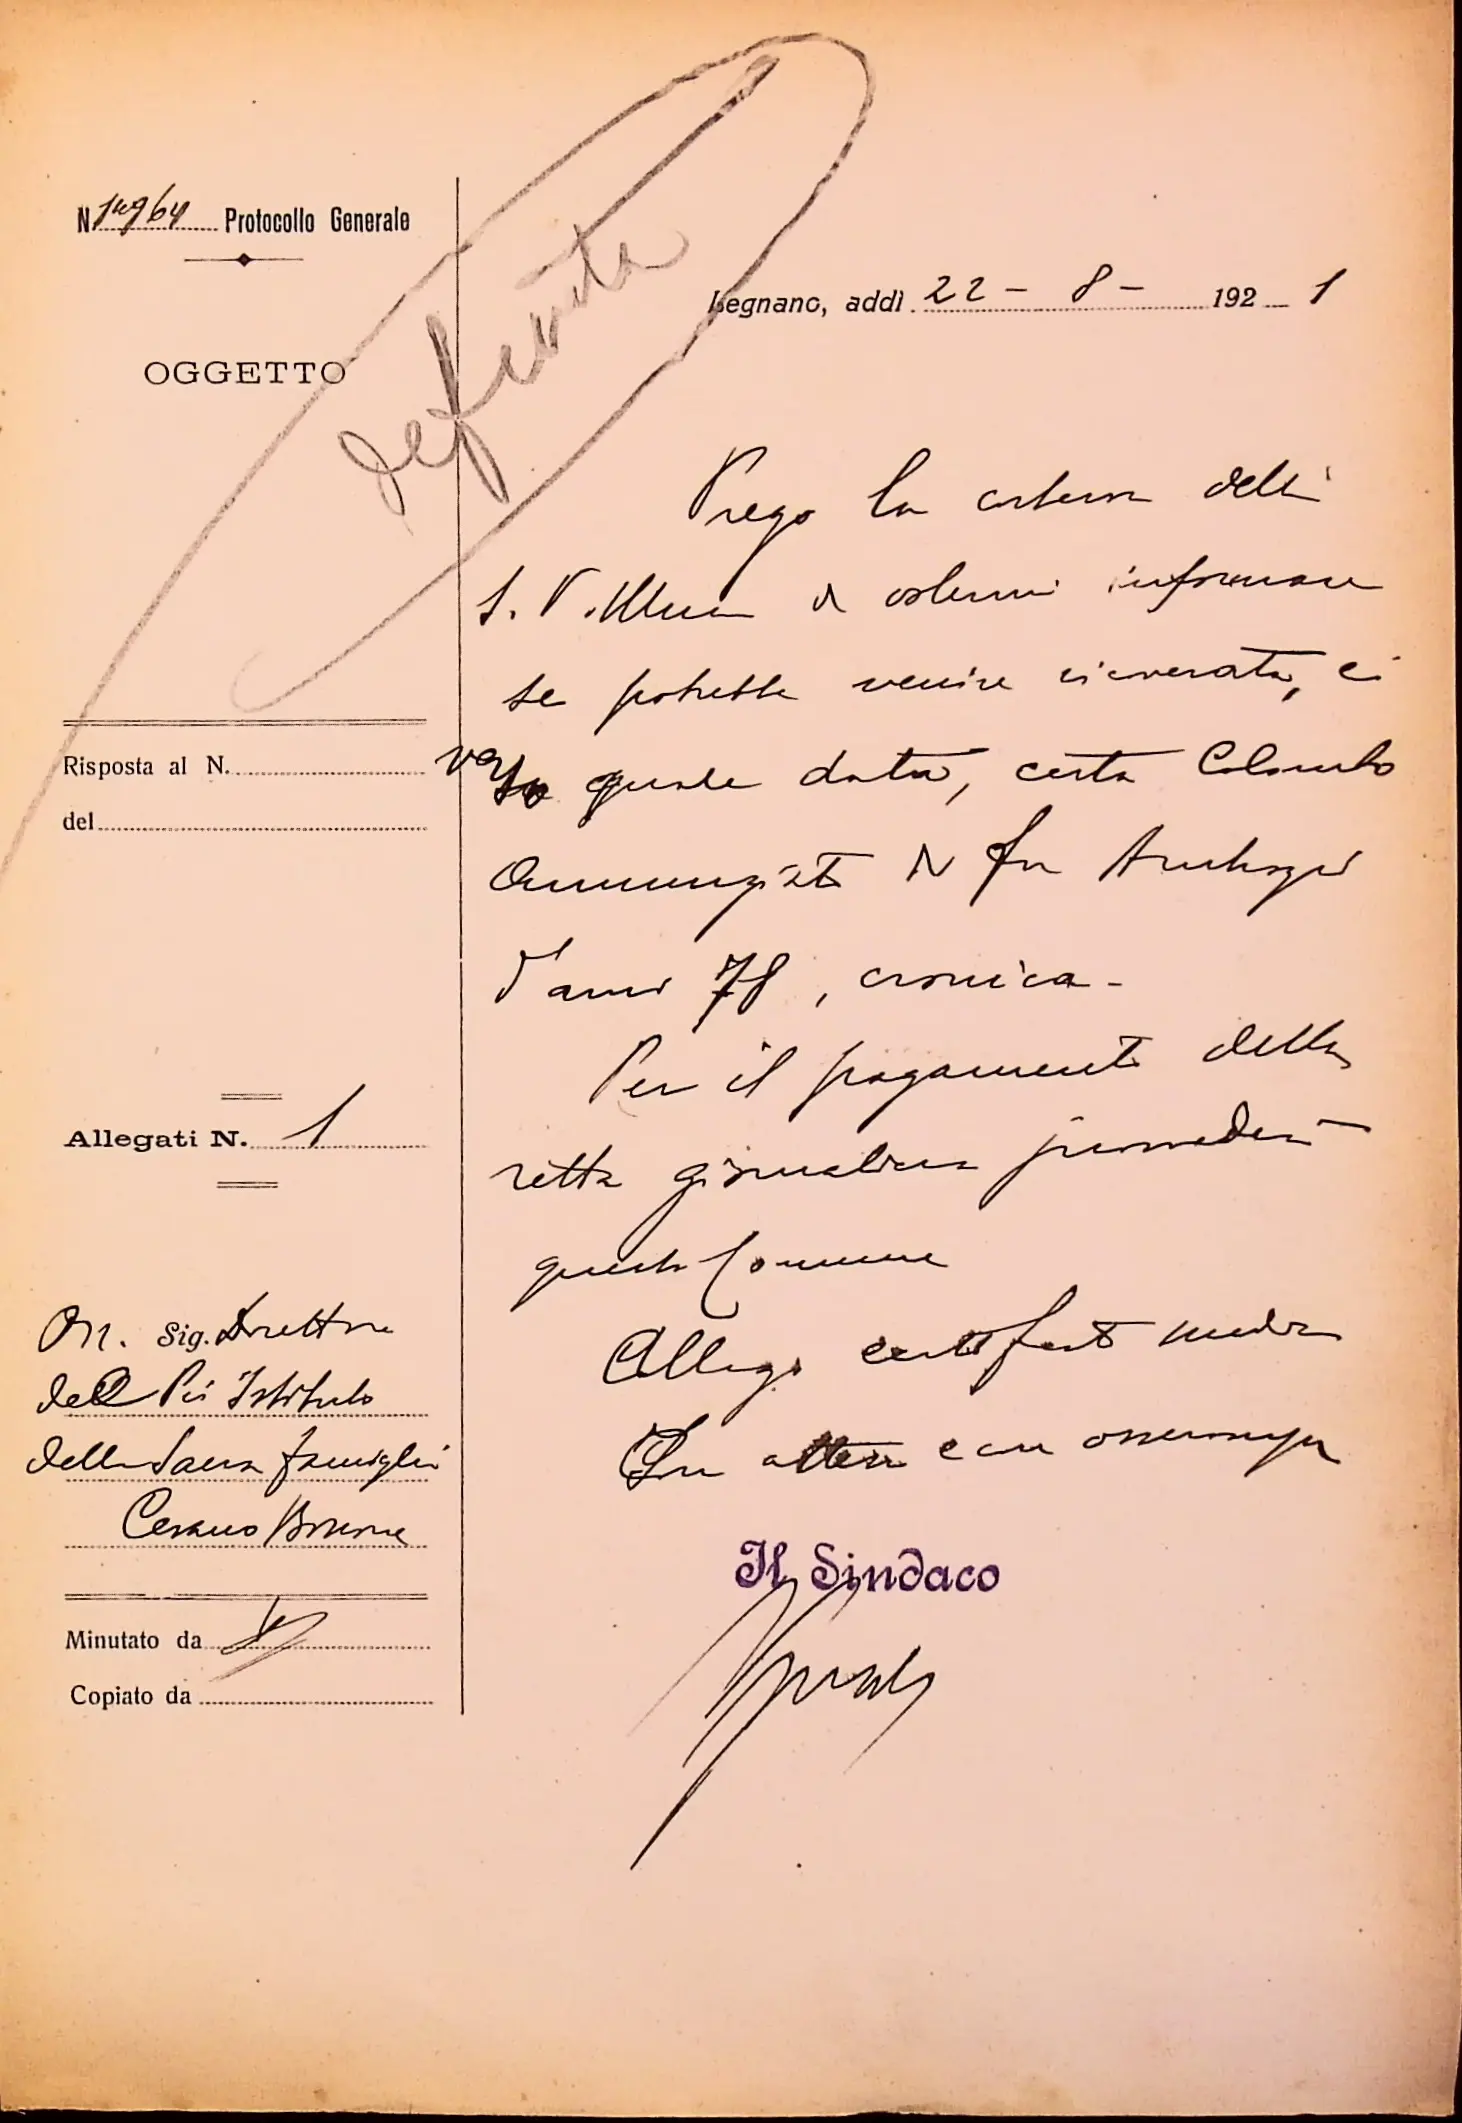 N 14964 Protocollo Generale
OGGETTO
definita
Legnano, addì 22 - 8 - 1921
Prego la cortesia della
S. V. Ill.ma di volermi informare
se potrebbe venire ricoverata, e
verso quale data, certa Colombo
Annunziata fu Ambrogio
d'anni 78, cronica -
Per il pagamento della
retta giornaliera provvederà
questo Comune
Allego certificato medico
In attesa con osservanza
Il Sindaco
Risposta al N.
del
Allegati N. 1
On. Sig. Direttore
del Pio Istituto
della Sacra Famiglia
Cesano Boscone
Minutato da
Copiato da